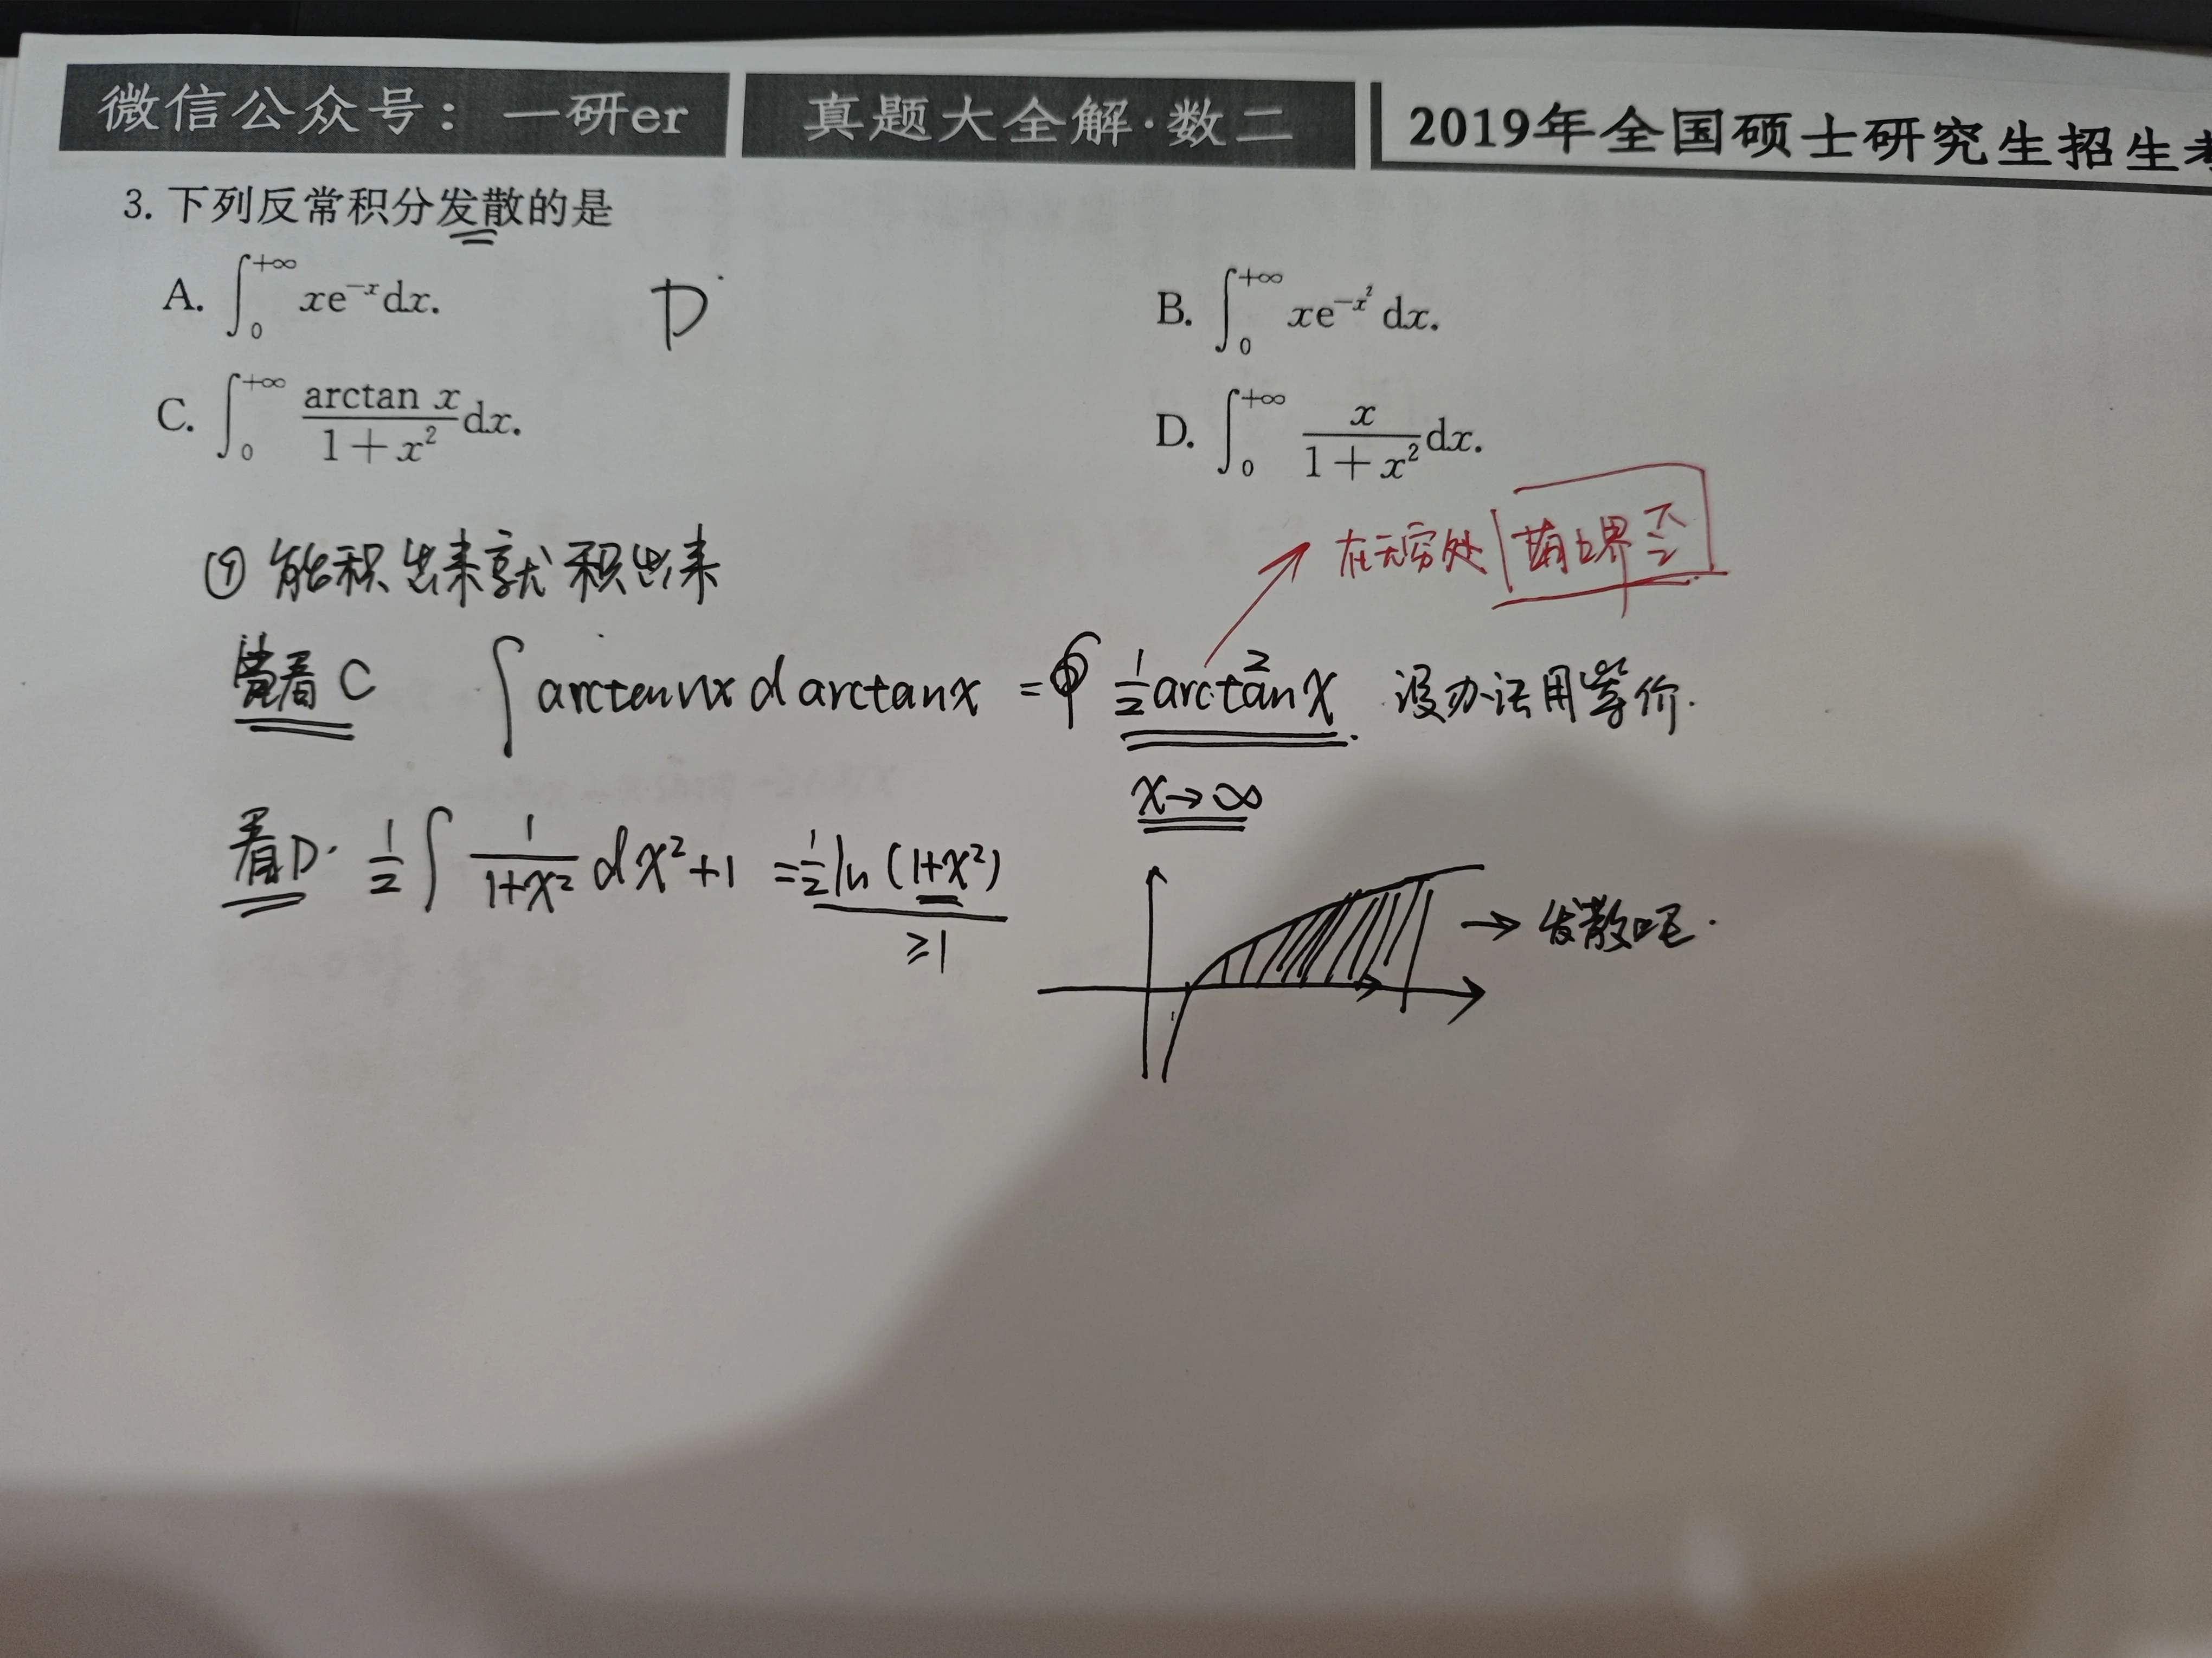 微信公众号：一研er 真题大全解·数二 2019年全国硕士研究生招生
3. 下列反常积分发散的是
A. ∫₀^{+∞} xe^{-x}dx. D B. ∫₀^{+∞} xe^{-x²}dx.
C. ∫₀^{+∞} \frac{arctan x}{1+x²}dx. D. ∫₀^{+∞} \frac{x}{1+x²}dx.
在无穷处
① 能积出来就积出来
看C ∫ arctanx d arctanx = \frac{1}{2}arctan²x. 没办法用等价.
x→∞
看D. \frac{1}{2}∫ \frac{1}{1+x²} dx²+1 = \frac{1}{2}ln(1+x²)
≥1
→ 发散吧.